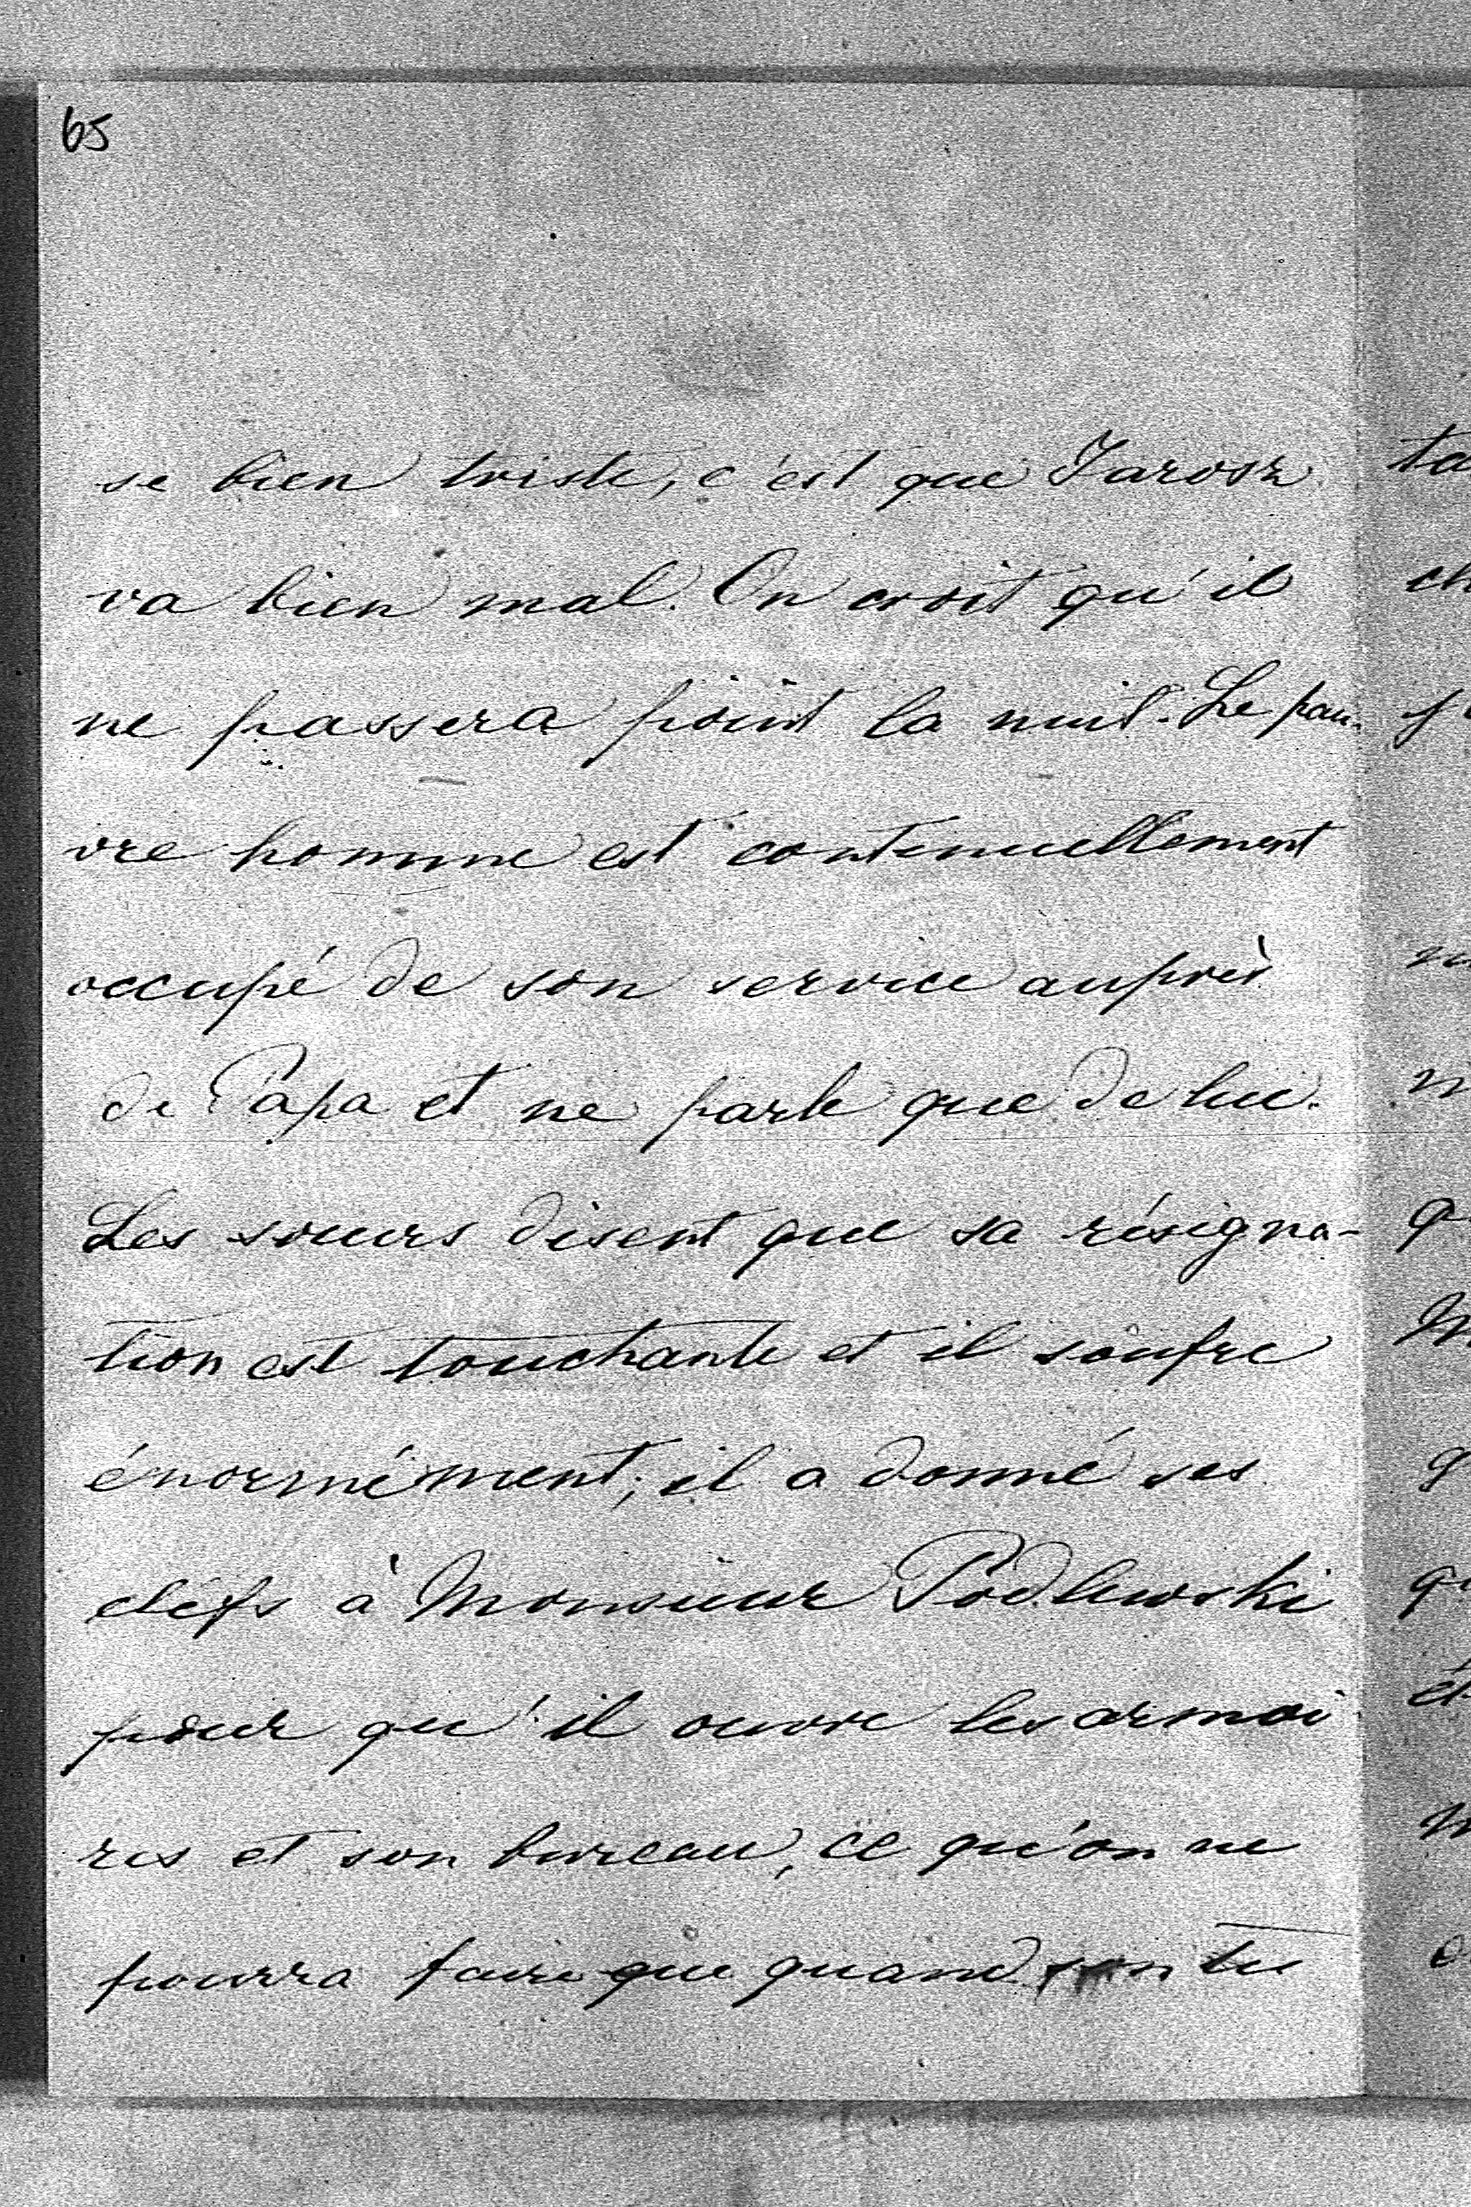 65
se bien triste, c'est que Jarosz
va bien mal. On croit qu'il
ne passera point la nuit. Le pau-
vre homme est continuellement
occupé de son service auprès
de Papa et ne parle que de lui.
Les sœurs disent que sa résigna-
tion est touchante et il soufre
énormément; il a donné ses
cléfs à Monsieur Podlewski
pour qu'il ouvre les armoi
res et son bureau, ce qu'on ne
pourra faire que quand son tes